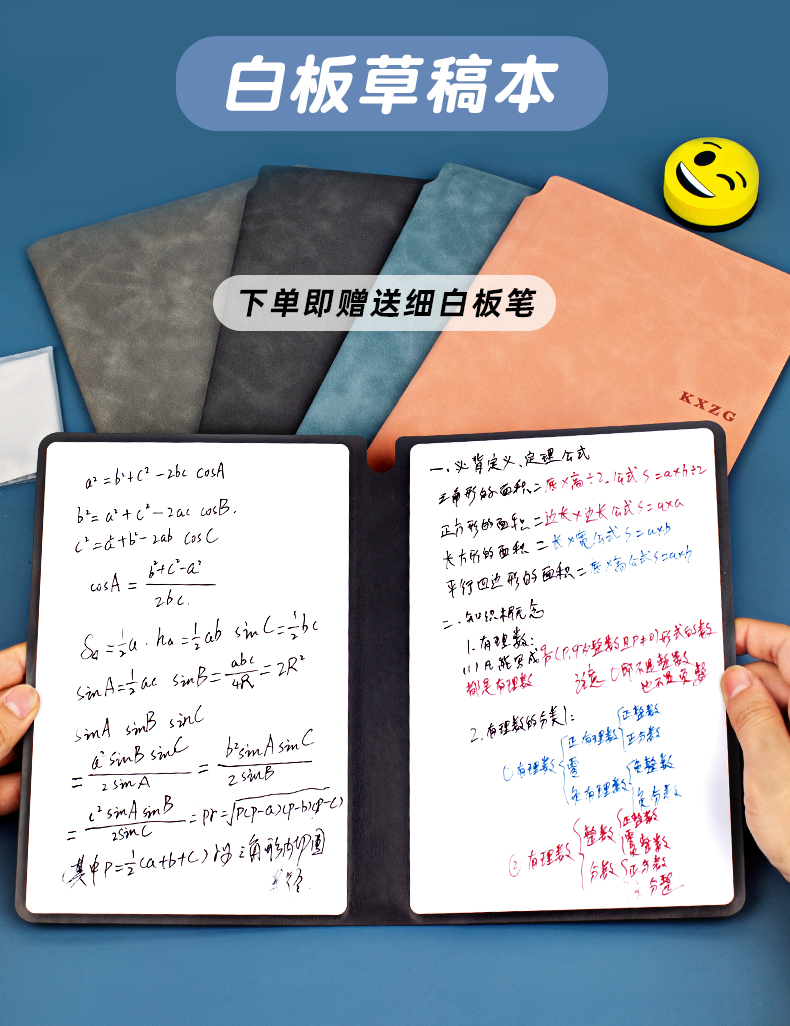 白板草稿本
下单即赠送细白板笔
KXZG
a² = b² + c² - 2bc cosA
b² = a² + c² - 2ac cosB.
c² = a² + b² - 2ab cosC
cosA = (b² + c² - a²) / 2bc.
S△ = ½a · ha = ½ab sinC = ½bc
sinA = ½ac sinB = abc/4R = 2R²
sinA sinB sinC
= a² sinB sinC / 2sinA = b² sinA sinC / 2sinB
= c² sinA sinB / 2sinC = pr = √p(p-a)(p-b)(p-c)
(其中p = ½(a+b+c) r为三角形内切圆
半径
一、必背定义、定理公式
三角形的面积=底×高÷2。公式 S=a×h÷2
正方形的面积=边长×边长 公式 S=a×a
长方形的面积=长×宽 公式 S=a×b
平行四边形的面积=底×高 公式 S=a×h
二、知识点概念
1.有理数:
(1)凡能写成 (p,q为整数且p≠0)形式的数
都是有理数 注意 0即不是整数
也不是负整
2.有理数的分类1:
①有理数{正有理数{正整数
正分数
零
负有理数{负整数
负分数
②有理数{整数{正整数
零
负整数
分数{正分数
负分整